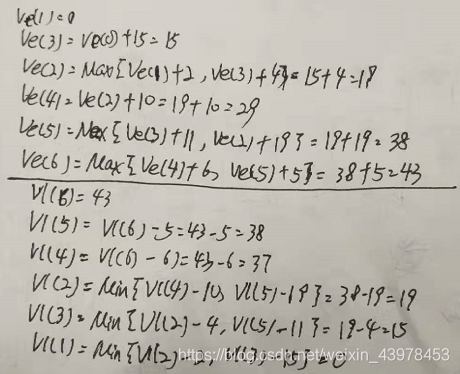 Ve(1)=0
Ve(3)=Ve(1)+15=15
Ve(2)=Max{Ve(1)+2,Ve(3)+4}=15+4=19
Ve(4)=Ve(2)+10=19+10=29
Ve(5)=Max{Ve(3)+11,Ve(2)+19}=19+19=38
Ve(6)=Max{Ve(4)+6,Ve(5)+5}=38+5=43
Vl(6)=43
Vl(5)=Vl(6)-5=43-5=38
Vl(4)=Vl(6)-6)=43-6=37
Vl(2)=Min{Vl(4)-10,Vl(5)-19}=38-19=19
Vl(3)=Min{Vl(2)-4,Vl(5)-11}=19-4=15
Vl(1)=Min{Vl(2)-2, -15}=0
https://blog.csdn.net/weixin_43978453